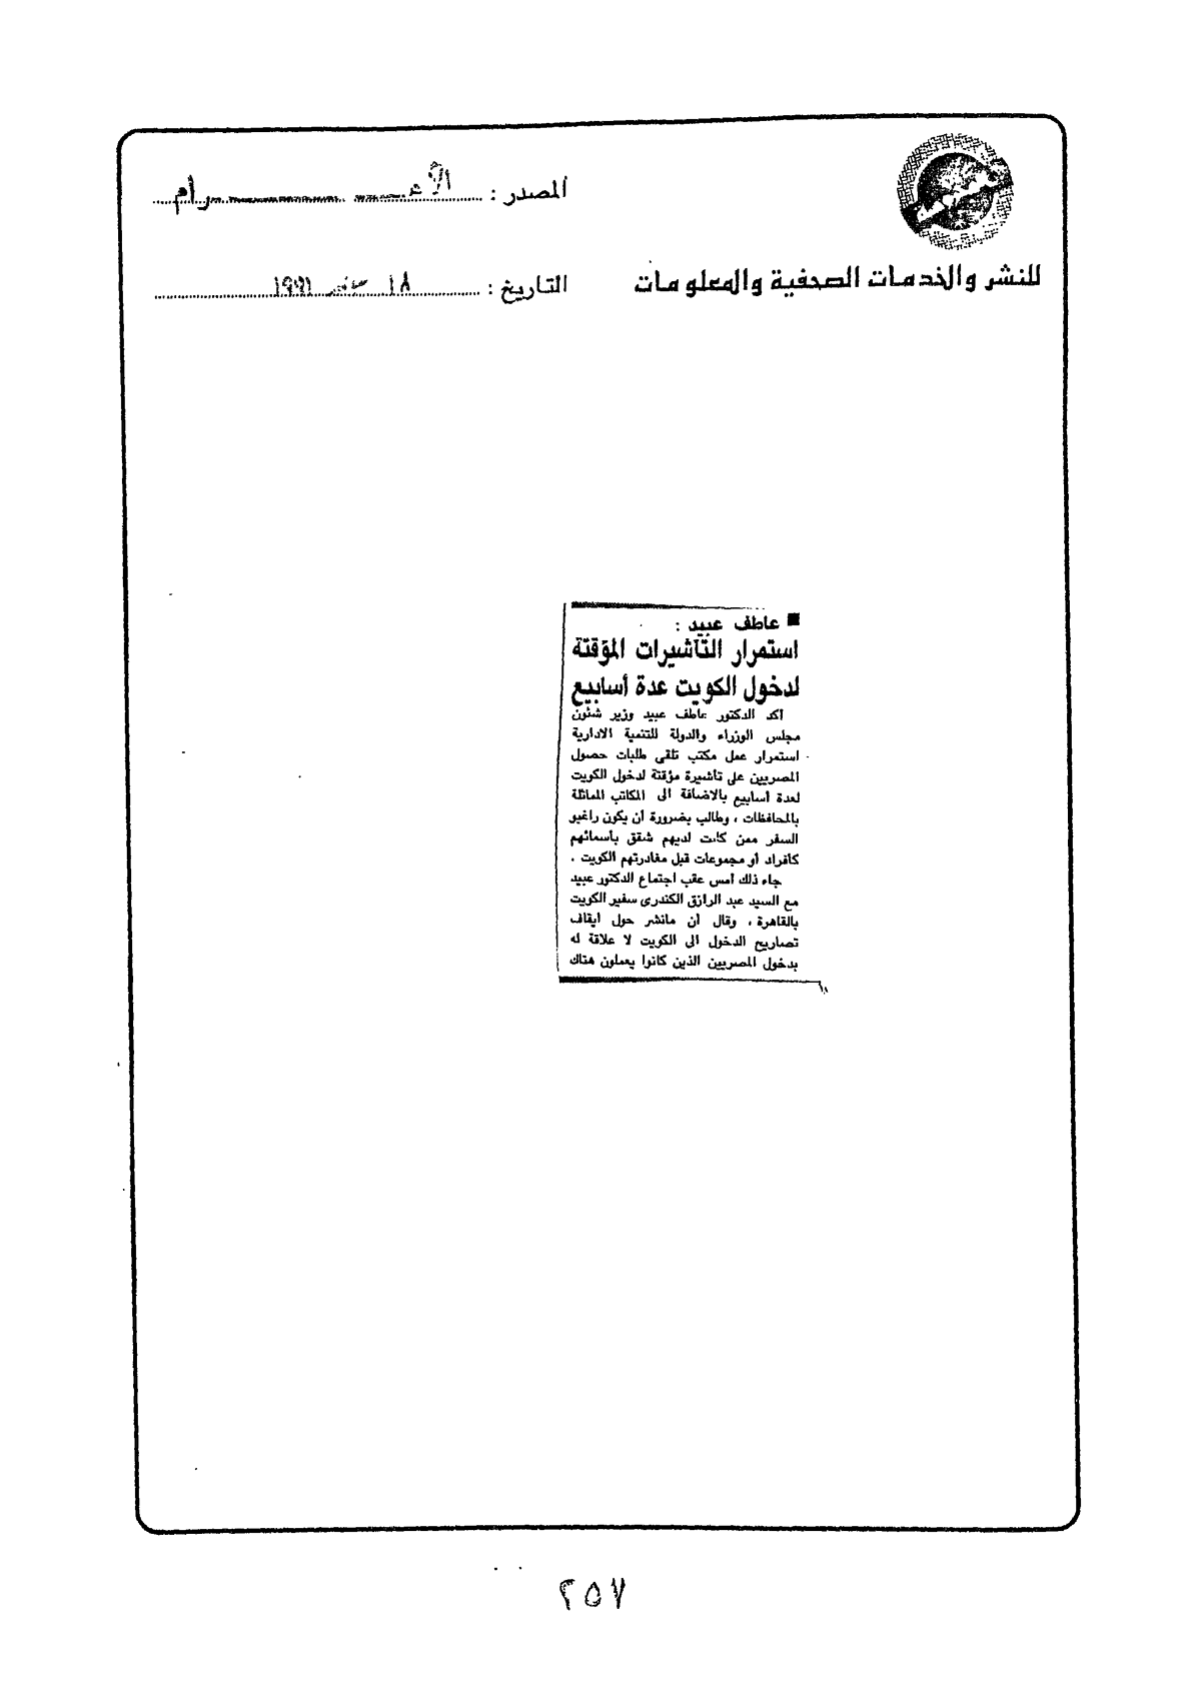 المصدر :
للنشر والخدمات الصحفية والمعلومات
التاريخ : ١٨ ١٩٩١
■ عاطف عبيد :
استمرار التأشيرات المؤقتة
لدخول الكويت عدة أسابيع
أكد الدكتور عاطف عبيد وزير شئون
مجلس الوزراء والدولة للتنمية الادارية
استمرار عمل مكتب تلقى طلبات حصول
المصريين على تأشيرة مؤقتة لدخول الكويت
لعدة أسابيع بالاضافة الى المكاتب المماثلة
بالمحافظات ، وطالب بضرورة أن يكون راغبو
السفر ممن كانت لديهم شقق بأسمائهم
كأفراد أو مجموعات قبل مغادرتهم الكويت .
جاء ذلك أمس عقب اجتماع الدكتور عبيد
مع السيد عبد الرازق الكندرى سفير الكويت
بالقاهرة ، وقال أن مانشر حول ايقاف
تصاريح الدخول الى الكويت لا علاقة له
بدخول المصريين الذين كانوا يعملون هناك
٢٥٧